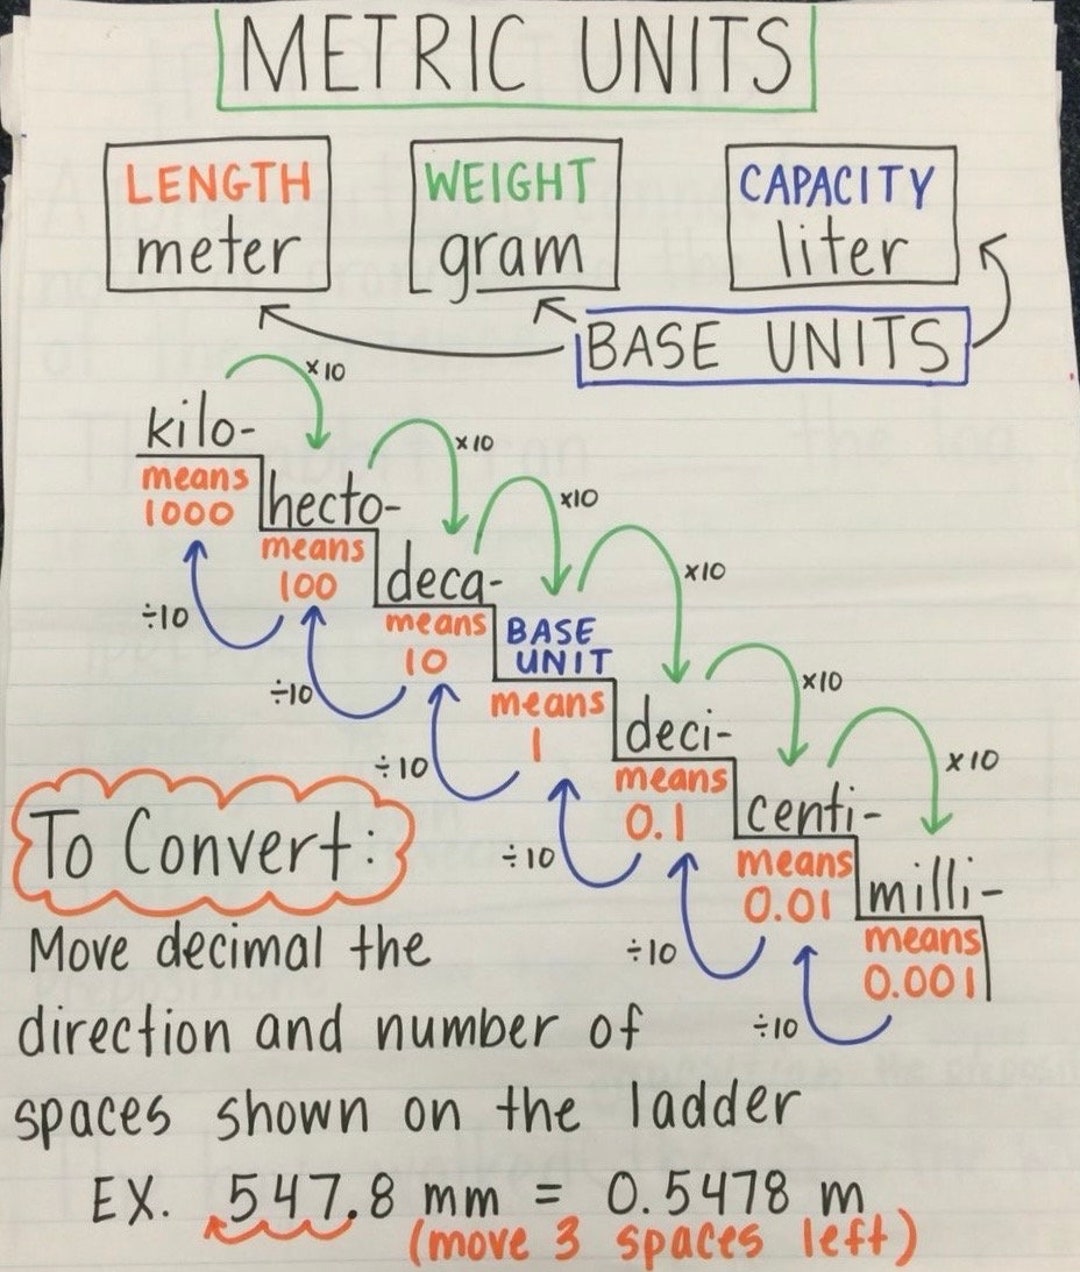 METRIC UNITS
LENGTH
meter
WEIGHT
gram
CAPACITY
liter
BASE UNITS
kilo-
means
1000
x10
÷10
hecto-
means
100
x10
÷10
deca-
means
10
x10
÷10
BASE
UNIT
means
1
x10
÷10
deci-
means
0.1
x10
÷10
centi-
means
0.01
x10
÷10
milli-
means
0.001
To Convert:
Move decimal the
direction and number of
spaces shown on the ladder
EX. 547.8 mm = 0.5478 m
(move 3 spaces left)